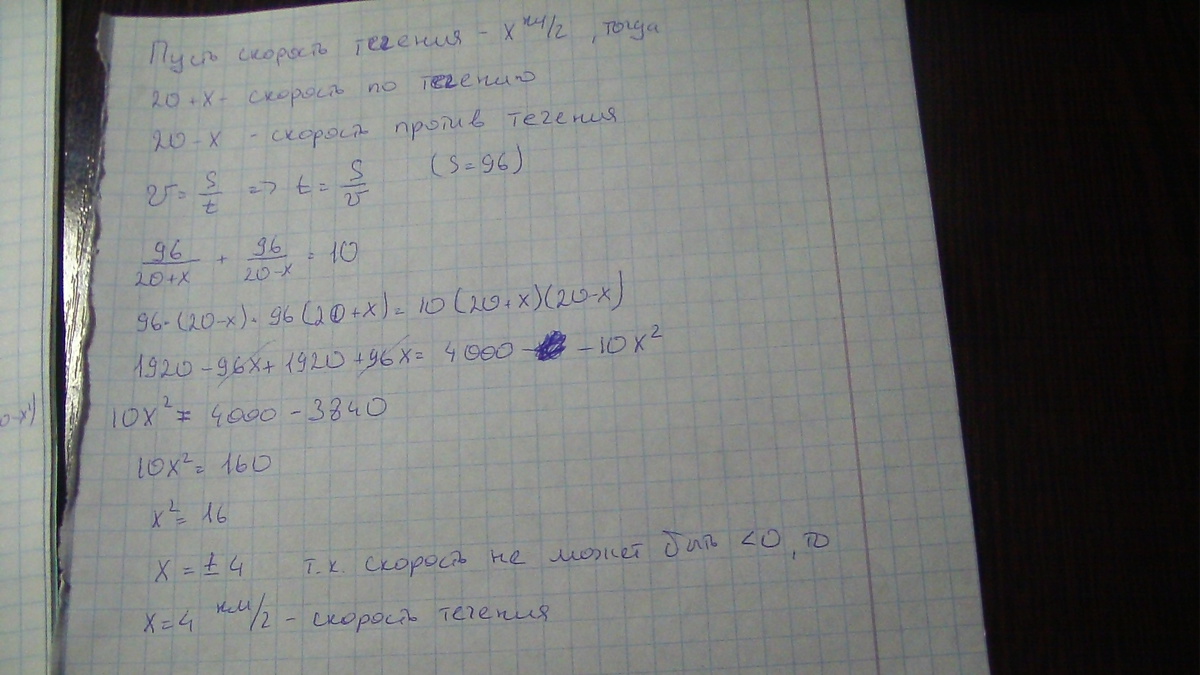 Пусть скорость течения - x км/г, тогда
20+x- скорость по течению
20-x - скорость против течения
v = S/t => t = S/v (S=96)
96/(20+x) + 96/(20-x) = 10
96·(20-x)+96(20+x) = 10(20+x)(20-x)
1920 - 96x + 1920 + 96x = 4000 - - 10x²
10x² = 4000 - 3840
10x² = 160
x² = 16
x = ±4 т.к. скорость не может быть <0, то
x=4 км/г - скорость течения